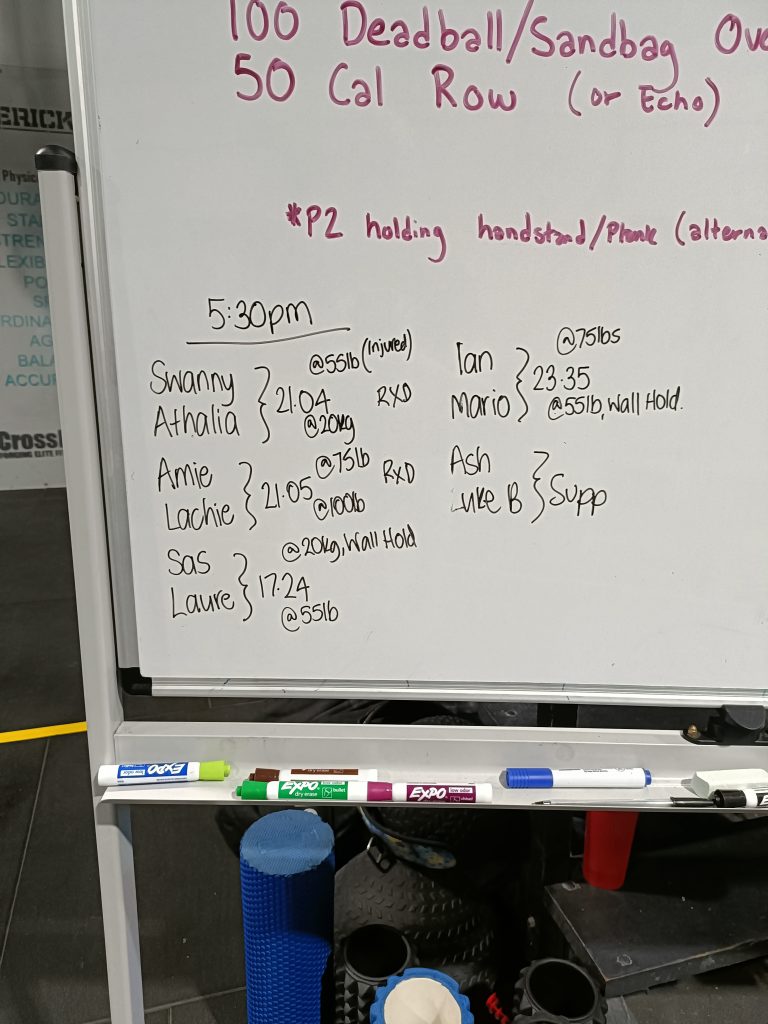 100 Deadball/Sandbag Ove
50 Cal Row (or Echo)
*P2 holding handstand/Plank (alterna
5:30pm
@55lb (Injured)
Swanny
Athalia
21.04 RXD
@20kg
@75lb
Amie
Lachie
21.05 RXD
@100lb
@20kg, Wall Hold
Sas
Laure
17.24
@55lb
@75lbs
Ian
Mario
23.35
@55lb, Wall Hold.
Ash
Luke B
Supp
ERICK
Physic
OURA
STA
STREN
LEXIB
PO
SP
RDINA
AG
BALA
ACCUR
CrossF
FORGING ELITE FI
EXPO low odor
EXPO dry erase bullet
EXPO low odor